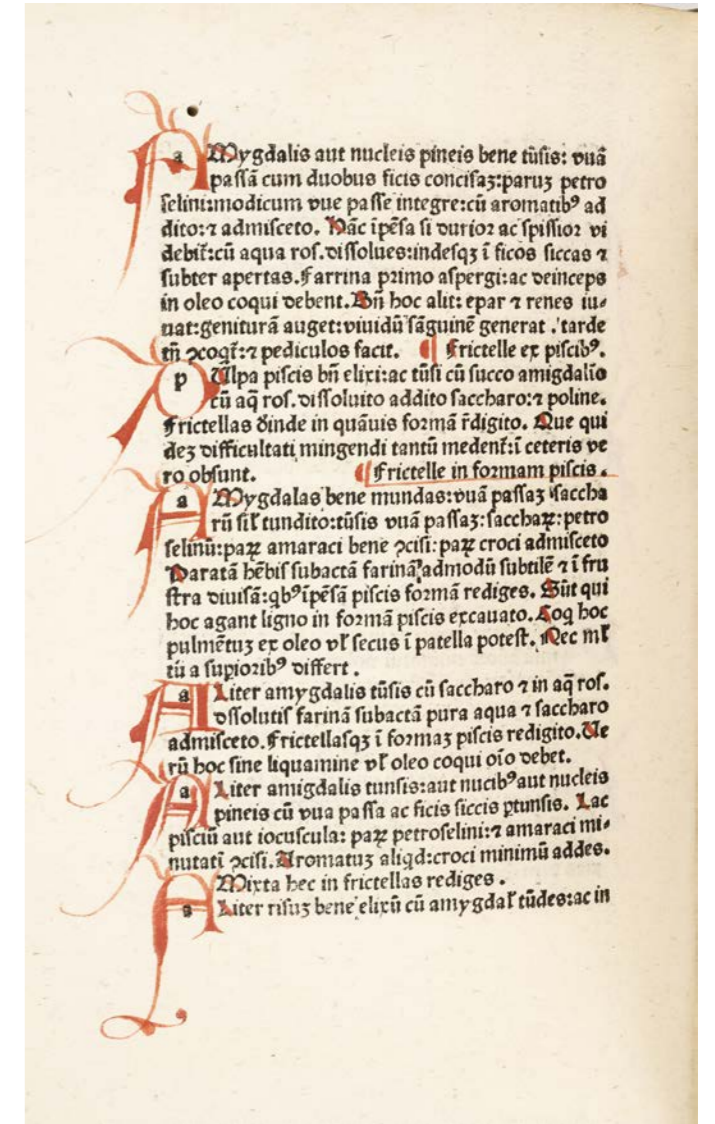 aMygdalis aut nucleis pineis bene tūsis: vuā
passā cum duobus ficis concisaꝫ:paruꝫ petro
selini:modicum vue passe integre:cū aromatibꝰ ad
dito:⁊ admisceto. Hāc īpēsa si durior ac spissior vi
debit̄:cū aqua ros.dissolues:indesqꝫ ī ficos siccas ⁊
subter apertas.Farrina primo aspergi:ac deinceps
in oleo coqui debent.Bn̄ hoc alit: epar ⁊ renes iu⸗
uat:geniturā auget:viuidū sāguinē generat .tarde
tn̄ ꝯcoqt̄:⁊ pediculos facit. ¶ Frictelle ex piscibꝰ.
pUlpa piscis bn̄ elixi:ac tūsi cū succo amigdalīo
cū aq̄ ros.dissoluito addito saccharo:⁊ poline.
Frictellas d̄inde in quāuis formā r̄digito. Que qui
deꝫ difficultati mingendi tantū medent̄:ī ceteris ve
ro obsunt. ¶Frictelle in formam piscis.
aMygdalas bene mundas:vuā passaꝫ saccha
rū sil̄ tundito:tūsis vuā passaꝫ:sacchaꝝ:petro
selinū:paꝝ amaraci bene ꝯcisi: paꝝ croci admisceto
Paratā hēbis subactā farinā admodū subtilē ⁊ ī fru
stra diuisā:qbꝰīpēsā piscis formā rediges. Sūt qui
hoc agant ligno in formā piscis excauato. Coq hoc
pulmētuꝫ ex oleo vl̄ secus ī patella potest. Nec ml̄
tū a suꝑioribꝰ differt .
aLiter amygdalis tūsis cū saccharo ⁊ in aq̄ ros.
dssolutis farinā subactā pura aqua ⁊ saccharo
admisceto.Frictellasqꝫ ī formaꝫ piscis redigito.Ve
rū hoc sine liquamine vl̄ oleo coqui oīo debet.
aLiter amigdalis tunsis:aut nucibꝰaut nucleis
pineis cū vua passa ac ficis siccis ꝑtunsis. Lac
pisciū aut iocuscula: paꝝ petroselini:⁊ amaraci mi⸗
nutatī ꝯcisi.Aromatuꝫ aliqd:croci minimū addes.
Mixta hec in frictellas rediges .
aLiter risuꝫ bene elixū cū amygdal̄ tūdes:ac in